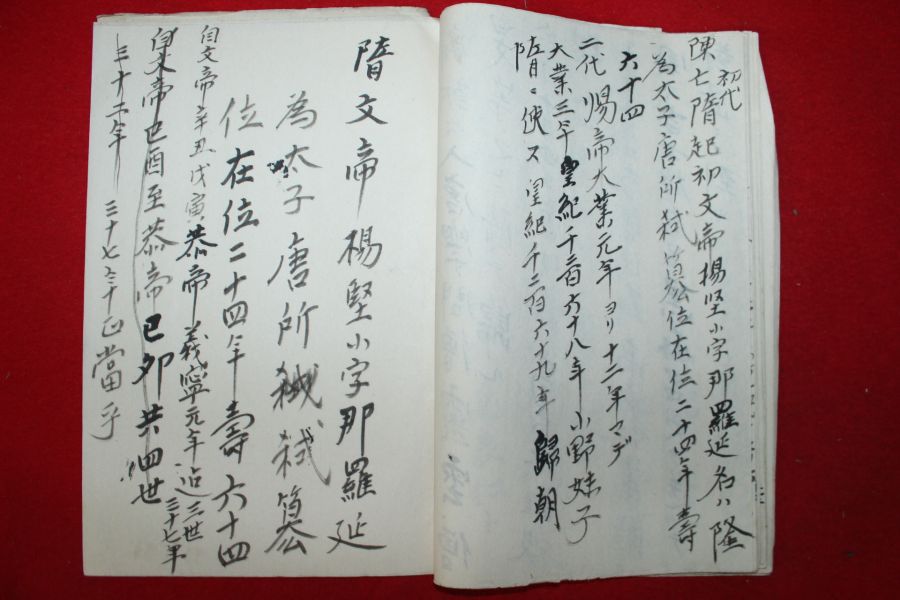 初代
陳亡隋起初文帝楊堅小字那羅延名ハ隆
為太子唐所弑簒位在位二十四年壽
六十四
二代 煬帝大業元年ヨリ十二年マデ
大業三年皇紀千二百六十八年小野妹子
隋ニ使ス皇紀千二百六十九年歸朝
隋文帝楊堅小字那羅延
為太子唐所弑弑簒
位在位二十四年壽六十四
自文帝辛丑戊寅恭帝義寧元年迄三世
三十七年
自文帝己酉至恭帝己卯共四世
三十二年 三十七ニ十正當乎